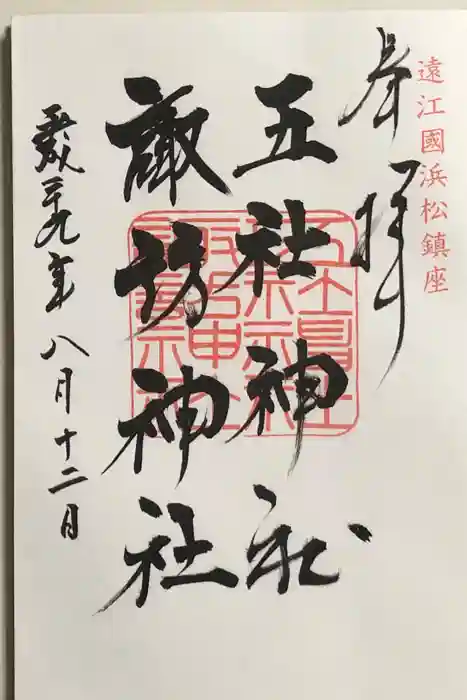 遠江國浜松鎮座
奉拝
五社神社
諏訪神社
平成二十九年八月十二日